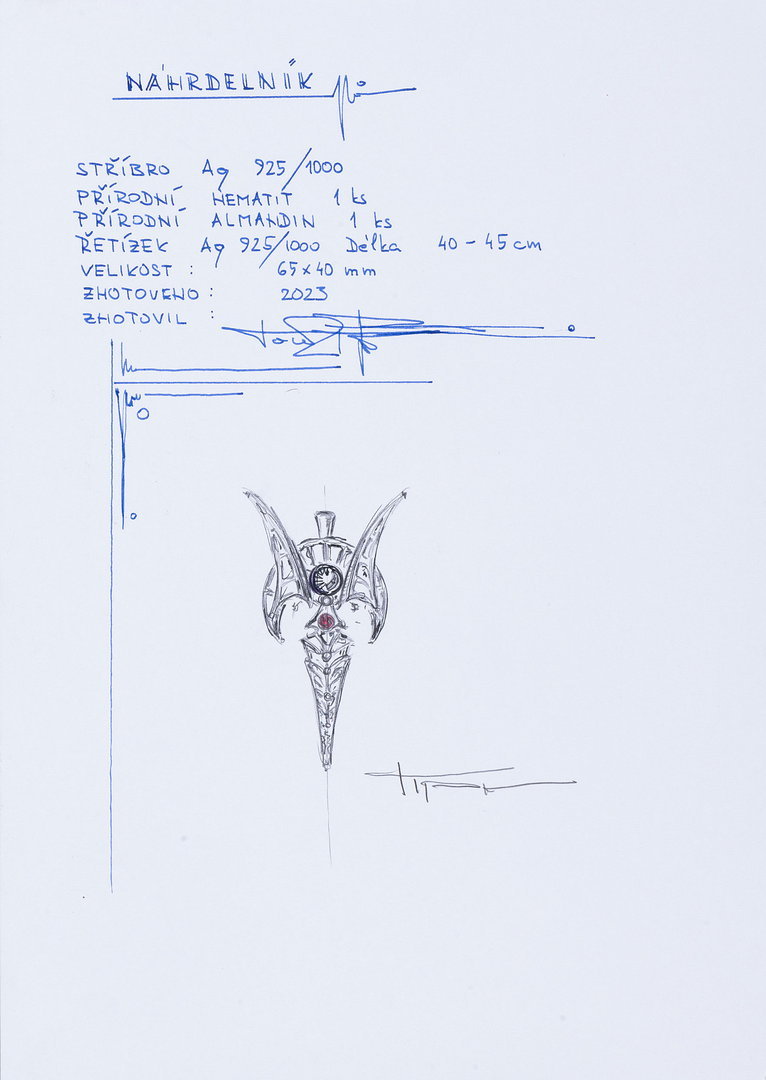 NÁHRDELNÍK
STŘÍBRO Ag 925/1000
PŘÍRODNÍ HEMATIT 1 ks
PŘÍRODNÍ ALMANDIN 1 ks
ŘETÍZEK Ag 925/1000 Délka 40 - 45 cm
VELIKOST : 65 x 40 mm
ZHOTOVENO : 2023
ZHOTOVIL :